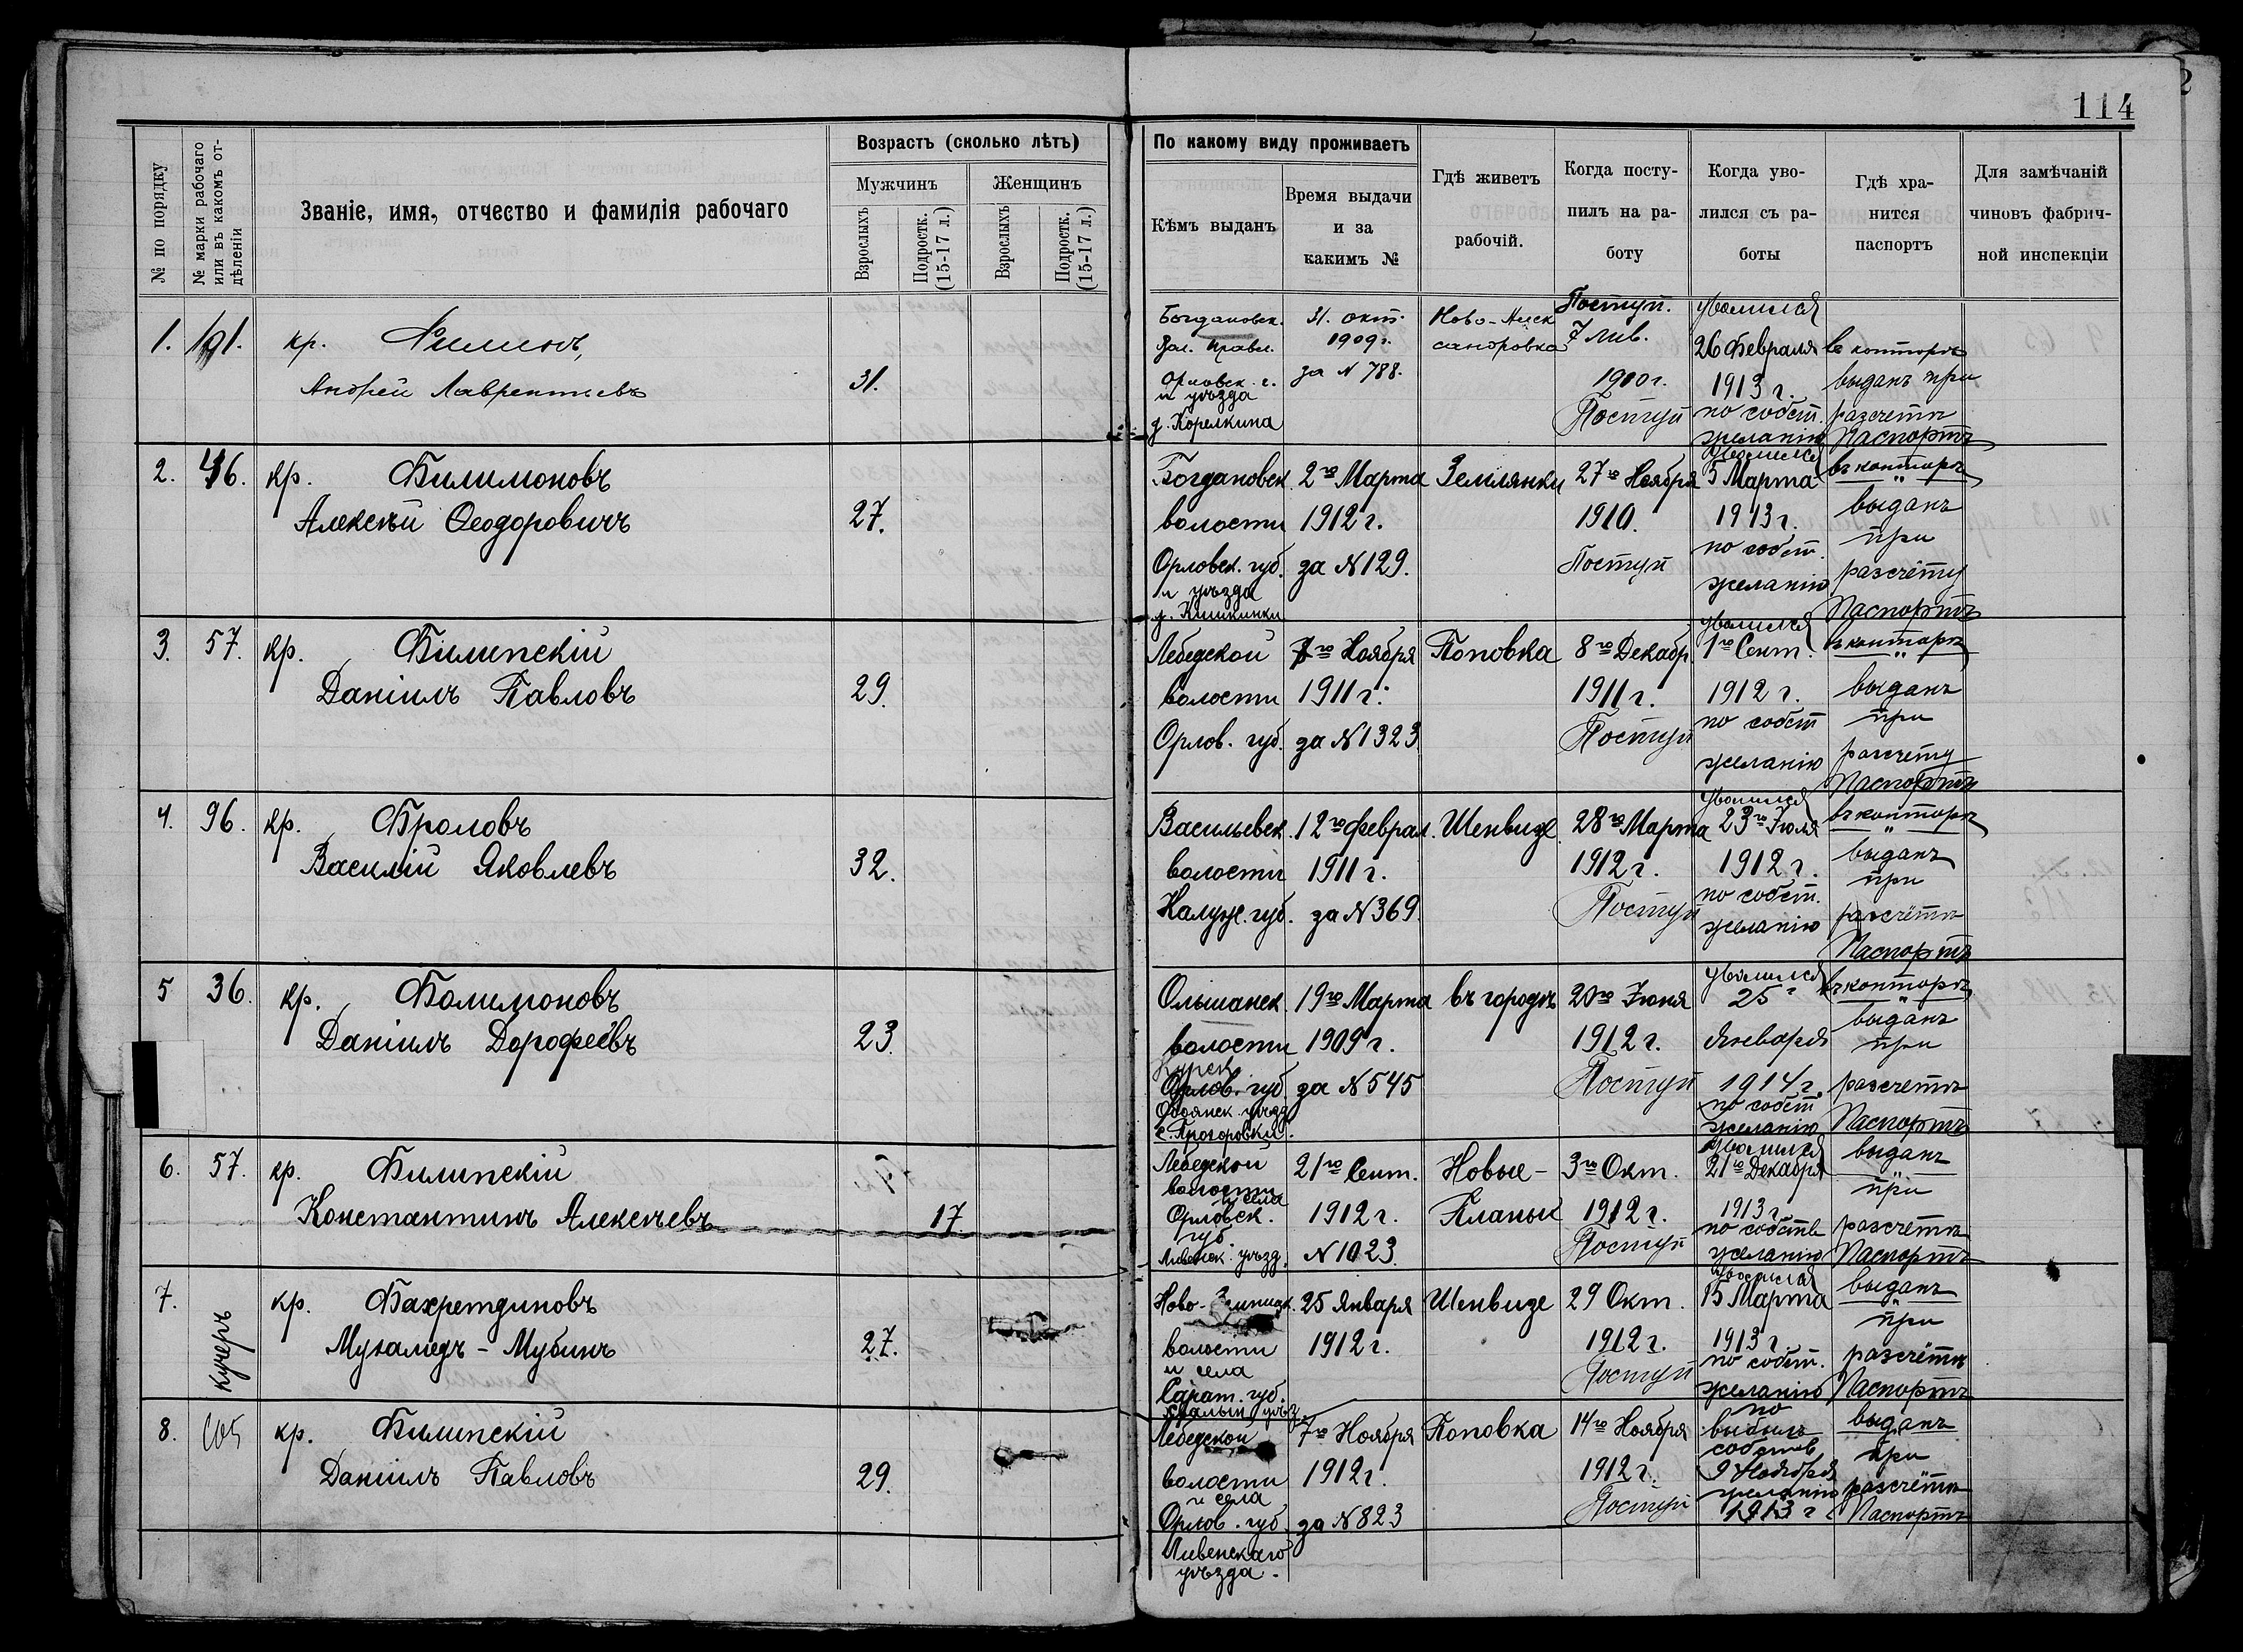 114
№ по порядку
№ марки рабочаго или въ какомъ отдѣленіи
Званіе, имя, отчество и фамилія рабочаго
Возрастъ (сколько лѣтъ)
Мужчинъ
Женщинъ
Взрослыхъ
Подростк. (15-17 л.)
Взрослыхъ
Подростк. (15-17 л.)
По какому виду проживаетъ
Кѣмъ выданъ
Время выдачи
и за
какимъ №
Гдѣ живетъ
рабочій.
Когда посту-
пилъ на ра-
боту
Когда уво-
лился съ ра-
боты
Гдѣ хра-
нится
паспортъ
Для замѣчаній
чиновъ фабрич-
ной инспекціи
1.
191.
кр.
Андрей Лаврентьевъ
31.
Богдановск.
Вол. правл.
Орловск. г.
и уѣзда
д. Корелкина
31. окт.
1909 г.
за N 788.
Ново-Алек
сандровка
Поступ.
7
1900 г.
Поступ
Уволился
26 Февраля
1913 г.
по собст.
желанію
въ конторѣ
выданъ при
разсчетѣ
Паспортъ
2.
46.
кр. Филимоновъ
Алексѣй Ѳеодоровичъ
27.
Богдановск.
волости
Орловск. губ.
и уѣзда
2го Марта
1912 г.
за N 129.
Землянки
27го Ноября
1910.
Поступ
Уволился
5 Марта
1913 г.
по собст.
желанію
въ конторѣ
выданъ
при
разсчёту
Паспортъ
3.
57.
кр. Филипскій
Даніилъ Павловъ
29.
Лебедской
волости
Орлов. губ.
7го Ноября
1911 г.
за N 1323
Поповка
8го Декабр.
1911 г.
Поступ
Уволился
1го Сент.
1912 г.
по собст
желанію
въ конторѣ
выданъ
при
разсчету
Паспортъ
4.
96.
кр. Фроловъ
Василій Яковлевъ
32.
Васильевск.
волости
Калуж. губ.
12го Феврал.
1911 г.
за N 369.
Шенвизе
28го Марта
1912 г.
Поступ
Уволился
23го Іюля
1912 г.
по собст.
желанію
въ конторѣ
выданъ
при
разсчётѣ
Паспортъ
5
36.
кр. Фолимоновъ
Даніилъ Дорофеевъ
23.
Ольшанск.
волости
Курск.
Орлов. губ.
Обоянск. уѣзд
с. Прохоровки.
19го Марта
1909 г.
за N 545
въ городѣ
20го Іюня
1912 г.
Поступ
Уволился
25г
Января
1914 г.
по собст
желанію
въ конторѣ
выданъ
при
разсчетѣ
Паспортъ
6.
57.
кр. Филипскій
Константинъ Алексѣевъ
17
Лебедской
волости
и села
Орловск.
губ.
Ливенск. уѣзд.
21го Сент.
1912 г.
N 1023.
Новые-
Планы
3го Окт.
1912 г.
Поступ
Уволился
21го Декабря
1913 г.
по собств
желанію
выданъ
при
разсчетѣ
Паспортъ
7.
кучеръ
кр. Фахретдиновъ
Мухамедъ-Мубинъ
27.
волости
и села
Сарат. губ.
25 Января
1912 г.
Шенвизе
29 Окт.
1912 г.
Поступ
Уволился
15 Марта
1913 г.
по собст.
желанію
выданъ
при
разсчётѣ
Паспортъ
8.
105
кр. Филипскій
Даніилъ Павловъ
29.
Лебедской
волости
и села
Орлов. губ.
Ливенскаго
уѣзда.
7го Ноября
1912 г.
за N 823
Поповка
14го Ноября
1912 г.
Поступ
по
выбылъ
собств
9 Ноября
желанію
1913 г.
выданъ
при
разсчётѣ
Паспортъ